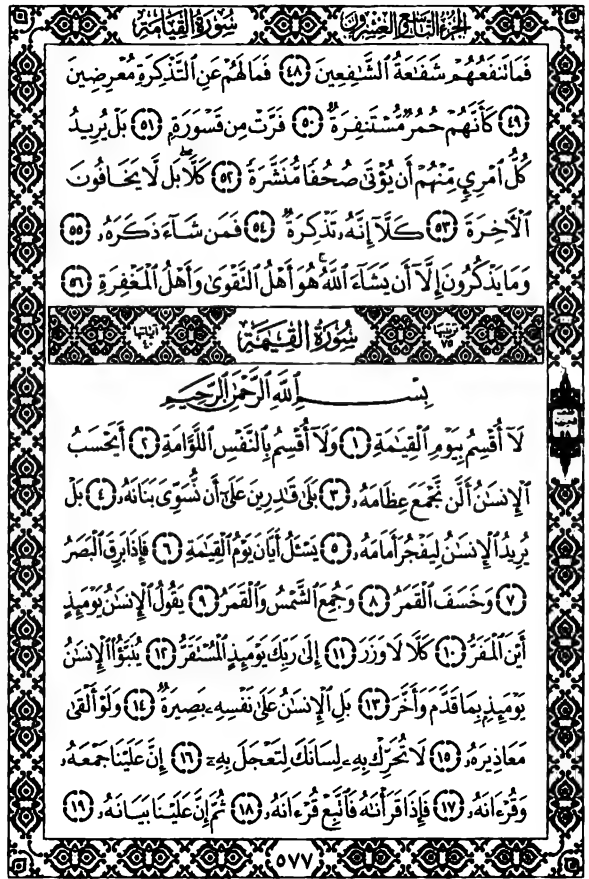 سُورَةُ القِيَامَةِ الجُزءُ التَّاسِعُ وَالعِشرُونَ
فَمَا تَنفَعُهُمْ شَفَٰعَةُ ٱلشَّٰفِعِينَ ٤٨ فَمَا لَهُمْ عَنِ ٱلتَّذْكِرَةِ مُعْرِضِينَ
٤٩ كَأَنَّهُمْ حُمُرٌ مُّسْتَنفِرَةٌ ٥٠ فَرَّتْ مِن قَسْوَرَةٍ ٥١ بَلْ يُرِيدُ
كُلُّ ٱمْرِئٍ مِّنْهُمْ أَن يُؤْتَىٰ صُحُفًا مُّنَشَّرَةً ٥٢ كَلَّا ۖ بَل لَّا يَخَافُونَ
ٱلْأَخِرَةَ ٥٣ كَلَّآ إِنَّهُۥ تَذْكِرَةٌ ٥٤ فَمَن شَآءَ ذَكَرَهُۥ ٥٥
وَمَا يَذْكُرُونَ إِلَّآ أَن يَشَآءَ ٱللَّهُ ۚ هُوَ أَهْلُ ٱلتَّقْوَىٰ وَأَهْلُ ٱلْمَغْفِرَةِ ٥٦
ترتيبها ٧٥ سُورَةُ القِيَٰمَةِ آياتها ٤٠
بِسْمِ ٱللَّهِ ٱلرَّحْمَٰنِ ٱلرَّحِيمِ
لَآ أُقْسِمُ بِيَوْمِ ٱلْقِيَٰمَةِ ١ وَلَآ أُقْسِمُ بِٱلنَّفْسِ ٱللَّوَّامَةِ ٢ أَيَحْسَبُ
ٱلْإِنسَٰنُ أَلَّن نَّجْمَعَ عِظَامَهُۥ ٣ بَلَىٰ قَٰدِرِينَ عَلَىٰٓ أَن نُّسَوِّىَ بَنَانَهُۥ ٤ بَلْ
يُرِيدُ ٱلْإِنسَٰنُ لِيَفْجُرَ أَمَامَهُۥ ٥ يَسْـَٔلُ أَيَّانَ يَوْمُ ٱلْقِيَٰمَةِ ٦ فَإِذَا بَرِقَ ٱلْبَصَرُ
٧ وَخَسَفَ ٱلْقَمَرُ ٨ وَجُمِعَ ٱلشَّمْسُ وَٱلْقَمَرُ ٩ يَقُولُ ٱلْإِنسَٰنُ يَوْمَئِذٍ
أَيْنَ ٱلْمَفَرُّ ١٠ كَلَّا لَا وَزَرَ ١١ إِلَىٰ رَبِّكَ يَوْمَئِذٍ ٱلْمُسْتَقَرُّ ١٢ يُنَبَّؤُا۟ ٱلْإِنسَٰنُ
يَوْمَئِذٍۭ بِمَا قَدَّمَ وَأَخَّرَ ١٣ بَلِ ٱلْإِنسَٰنُ عَلَىٰ نَفْسِهِۦ بَصِيرَةٌ ١٤ وَلَوْ أَلْقَىٰ
مَعَاذِيرَهُۥ ١٥ لَا تُحَرِّكْ بِهِۦ لِسَانَكَ لِتَعْجَلَ بِهِۦٓ ١٦ إِنَّ عَلَيْنَا جَمْعَهُۥ
وَقُرْءَانَهُۥ ١٧ فَإِذَا قَرَأْنَٰهُ فَٱتَّبِعْ قُرْءَانَهُۥ ١٨ ثُمَّ إِنَّ عَلَيْنَا بَيَانَهُۥ ١٩
٥٧٧